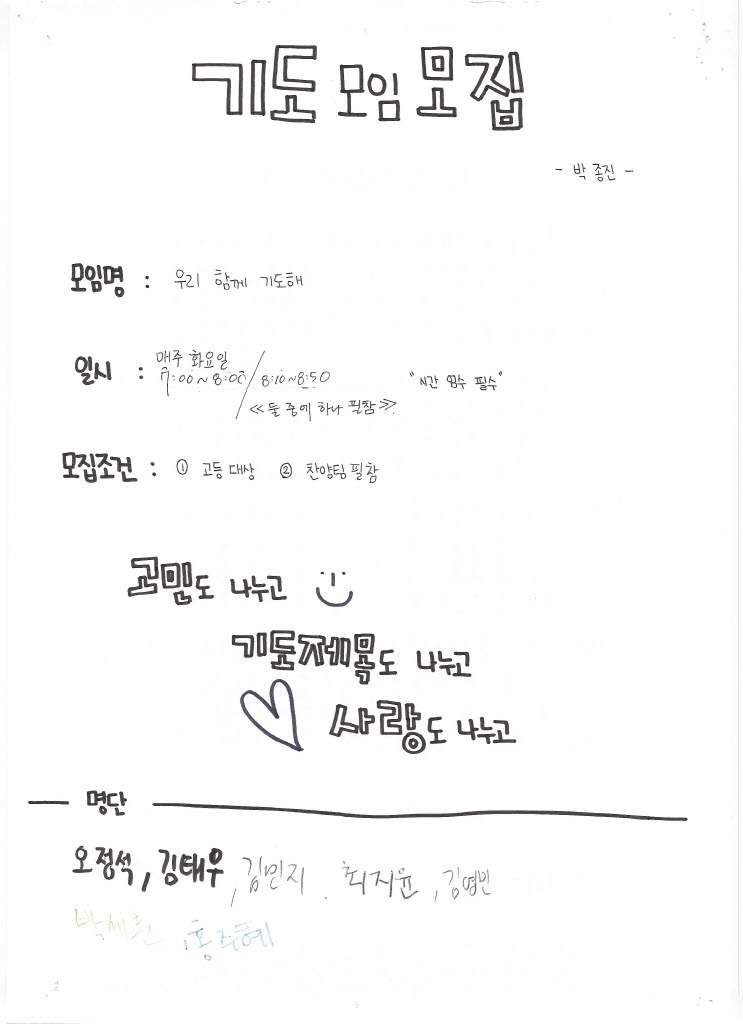 기도 모임 모집
- 박 종진 -
모임명 : 우리 함께 기도해
일시 : 매주 화요일
7:00~8:00 / 8:10~8:50 "시간 엄수 필수"
≪둘 중에 하나 필참≫
모집조건 : ① 고등 대상 ② 찬양팀 필참
고민도 나누고
기도제목도 나누고
사랑도 나누고
명단
오정석, 김태우, 김민지. 최지윤, 김영빈
박세원, 홍주혜